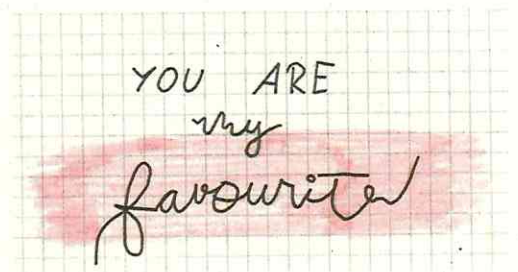 YOU ARE
my
favourite